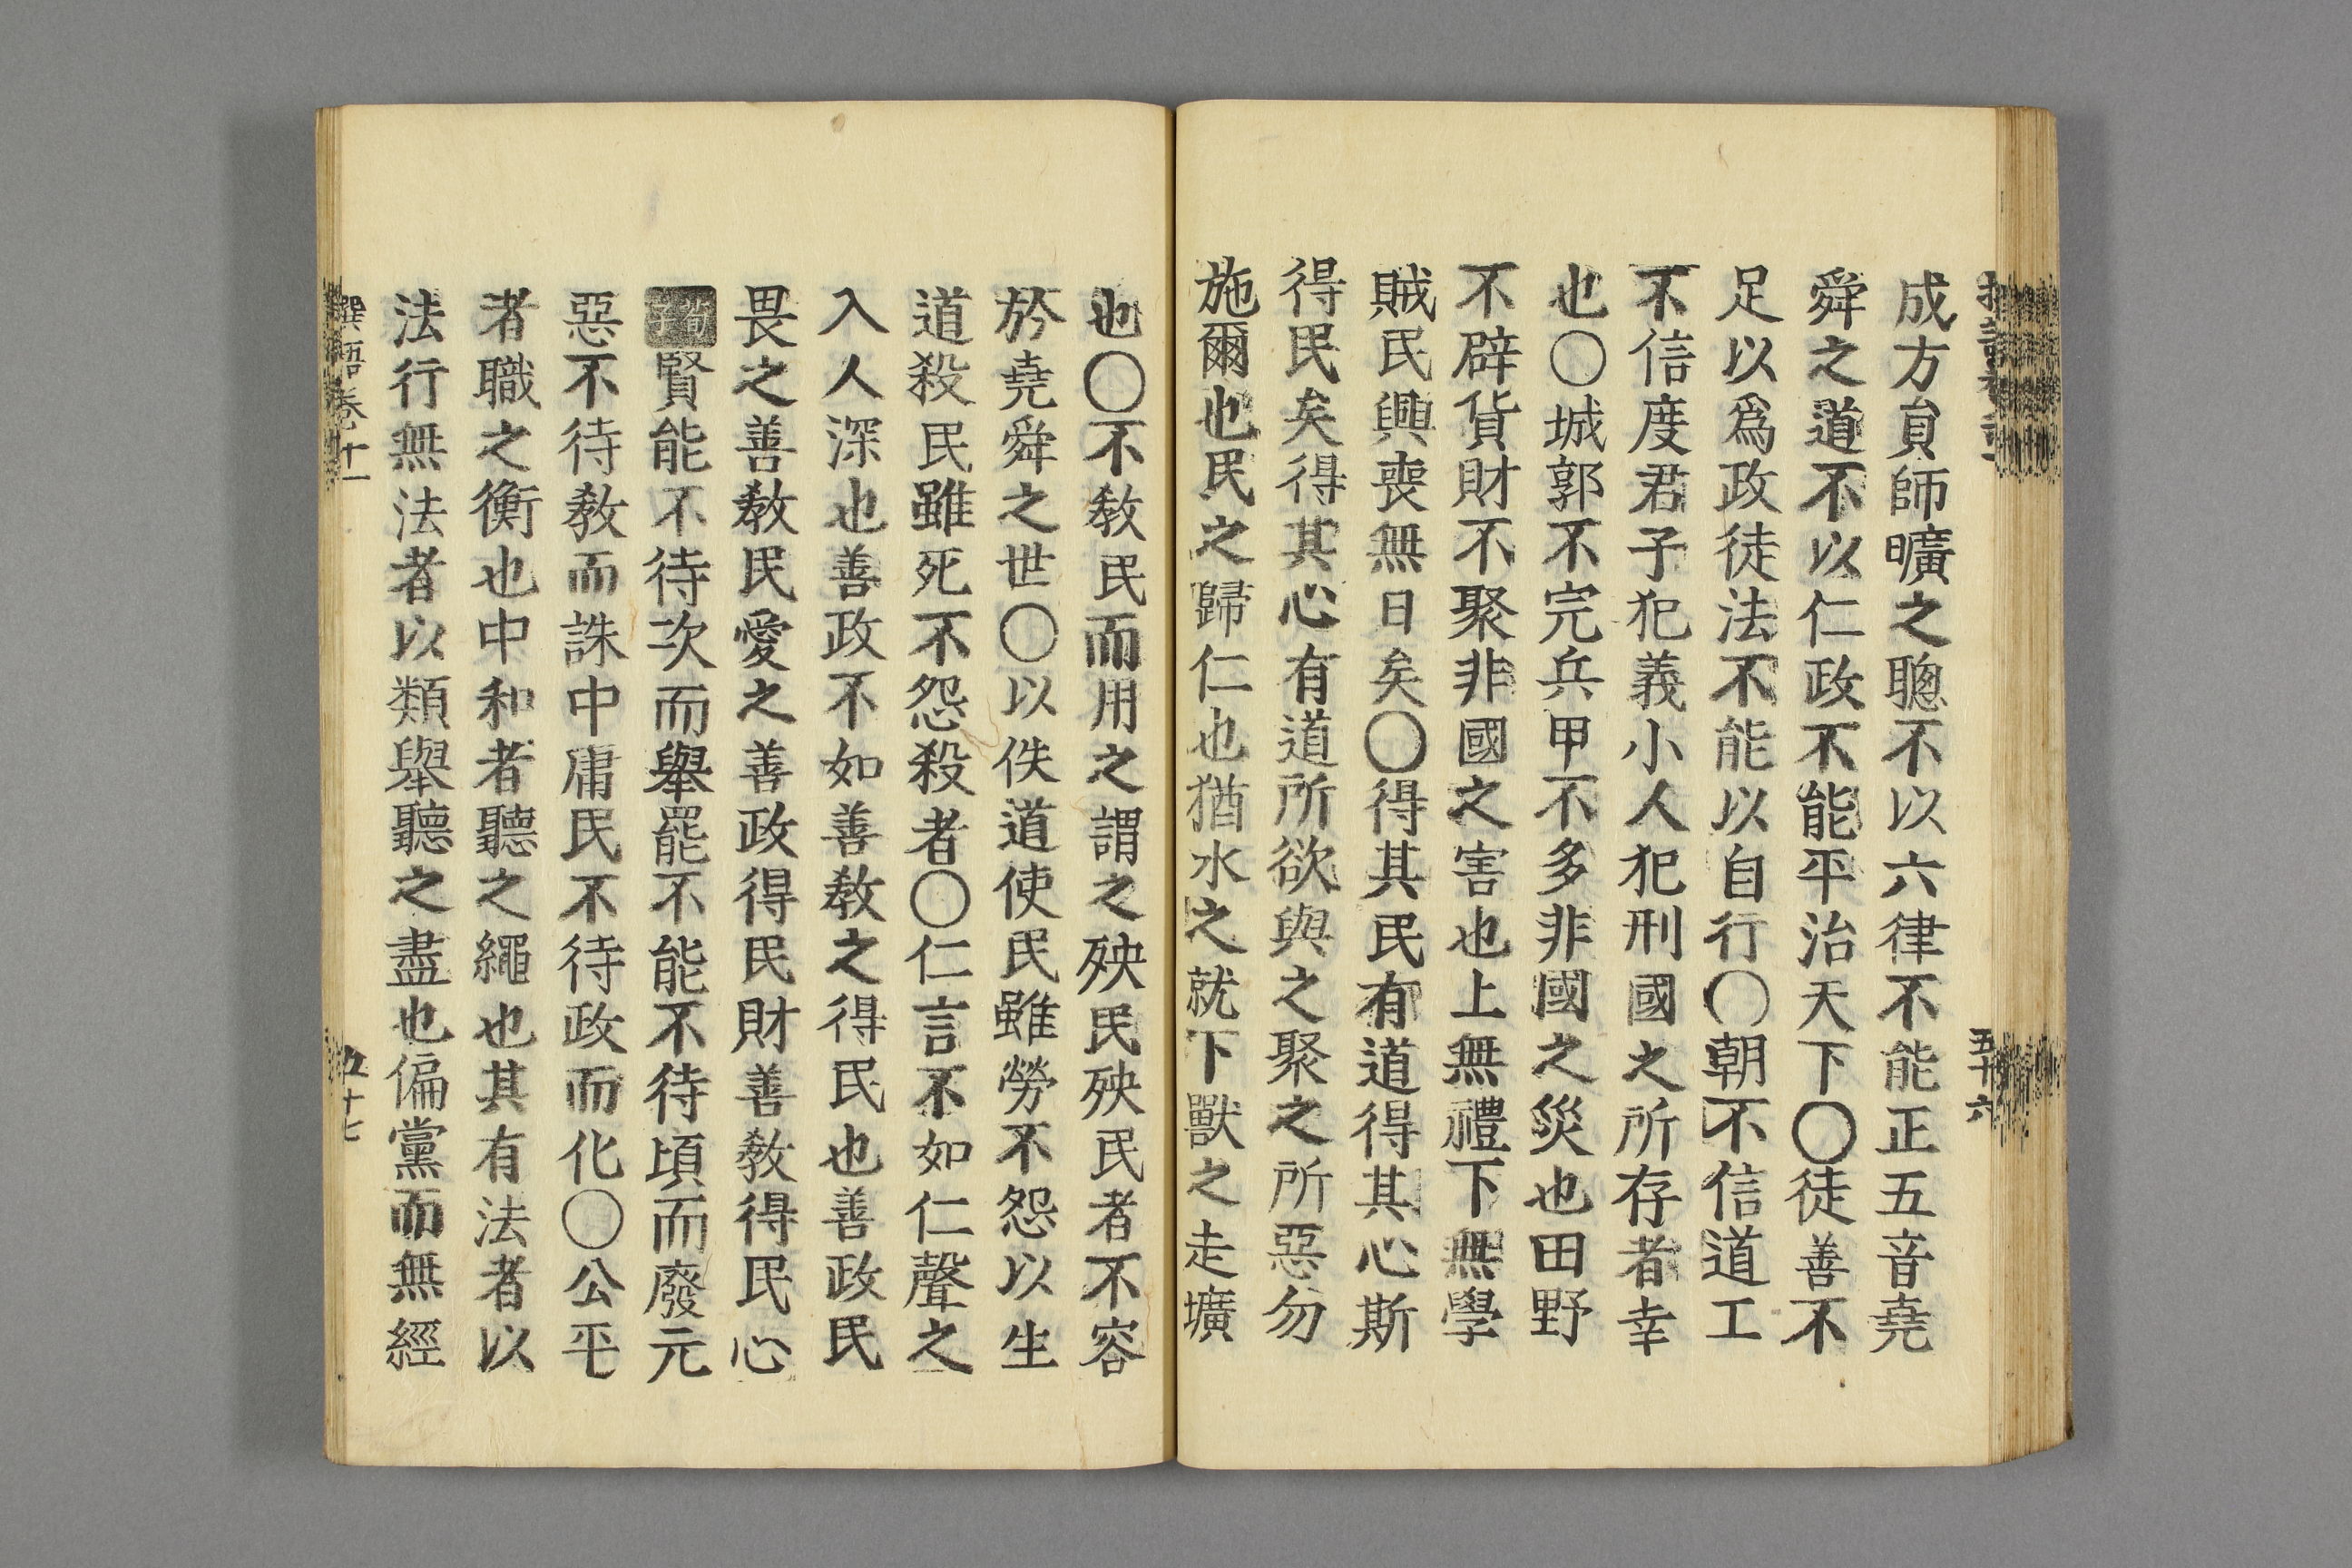 成方貟師曠之聰不以六律不能正五音堯
舜之道不以仁政不能平治天下〇徒善不
足以爲政徒法不能以自行〇朝不信道工
不信度君子犯義小人犯刑國之所存者幸
也〇城郭不完兵甲不多非國之災也田野
不辟貨財不聚非國之害也上無禮下無學
賊民興喪無日矣〇得其民有道得其心斯
得民矣得其心有道所欲與之聚之所惡勿
施爾也民之歸仁也猶水之就下獸之走壙
五十六
也〇不敎民而用之謂之殃民殃民者不容
於堯舜之世〇以佚道使民雖勞不怨以生
道殺民雖死不怨殺者〇仁言不如仁聲之
入人深也善政不如善敎之得民也善政民
畏之善敎民愛之善政得民財善敎得民心
荀子賢能不待次而舉罷不能不待頃而廢元
惡不待敎而誅中庸民不待政而化〇公平
者職之衡也中和者聽之繩也其有法者以
法行無法者以類舉聽之盡也偏黨而無經
撰語卷十一
五十七